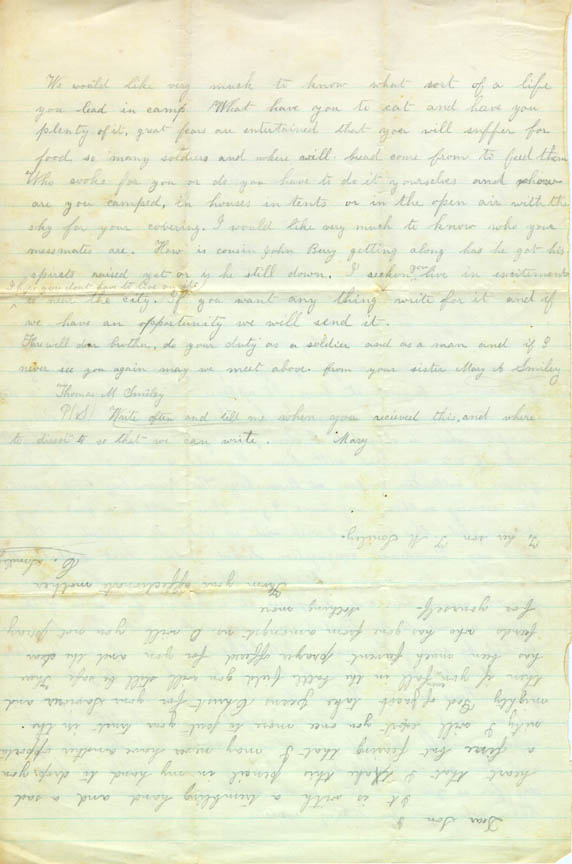 We would like very much to know what sort of a life
you lead in camp What have you to eat and have you
plenty of it, great fears are entertained that you will suffer for
food so many soldiers and where will bread come from to feed them
Who cooks for you or do you have to do it yourselves and
are you camped, in houses in tents or in the open air with the
sky for your covering. I would like very much to know who your
messmates are. How is cousin John Berry getting along has he got his
spirits raised yet or is he still down. I reckon live in excitement
I hope you dont have to live on it
so near the city. If you want any thing write for it and if
we have an opportunity we will send it.
Farewell dear brother, do your duty as a soldier and as a man and if I
never see you again may we meet above. from your sister Mary A Smiley
Thomas M Smiley
P(S) Write often and tell me when you recieved this, and where
to direct to so that we can write. Mary
Dear Son
It is with a trembling hand and a sad
heart that I take this pencil in my hand to drop you
a line but fearing that I may never have another opportu
nity I will exort you once more to put your trust in the
mighty God of peace take Jesus Christ for your Saviour and
then if you fall in the battle field you will still be safe Thare
has been much fervent prayer offered for you and the
who has gone from amongst us I will you and pray
for yourself Nothing more
From your affectionate mother
E. Smiley
To her son T M Smiley.